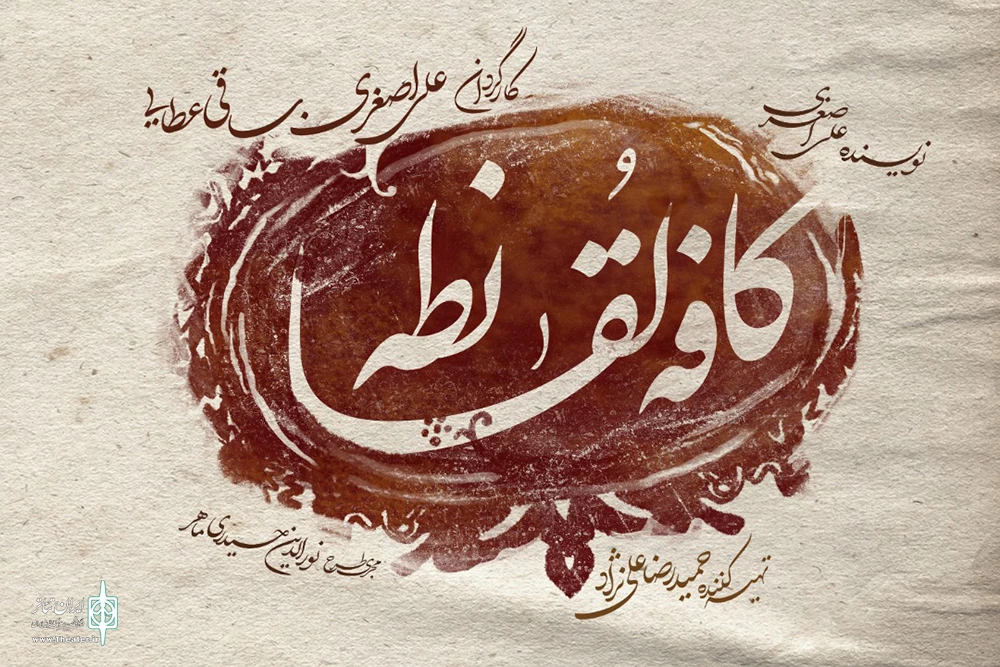 نویسنده علی اصغری
کارگردان علی اصغری . ساقی عطایی
کافه لُقانطه
تهیه کننده حمیدرضا علی نژاد
مجری طرح نورالدین حیدری ماهر
ایران تئاتر
www.Theater.ir